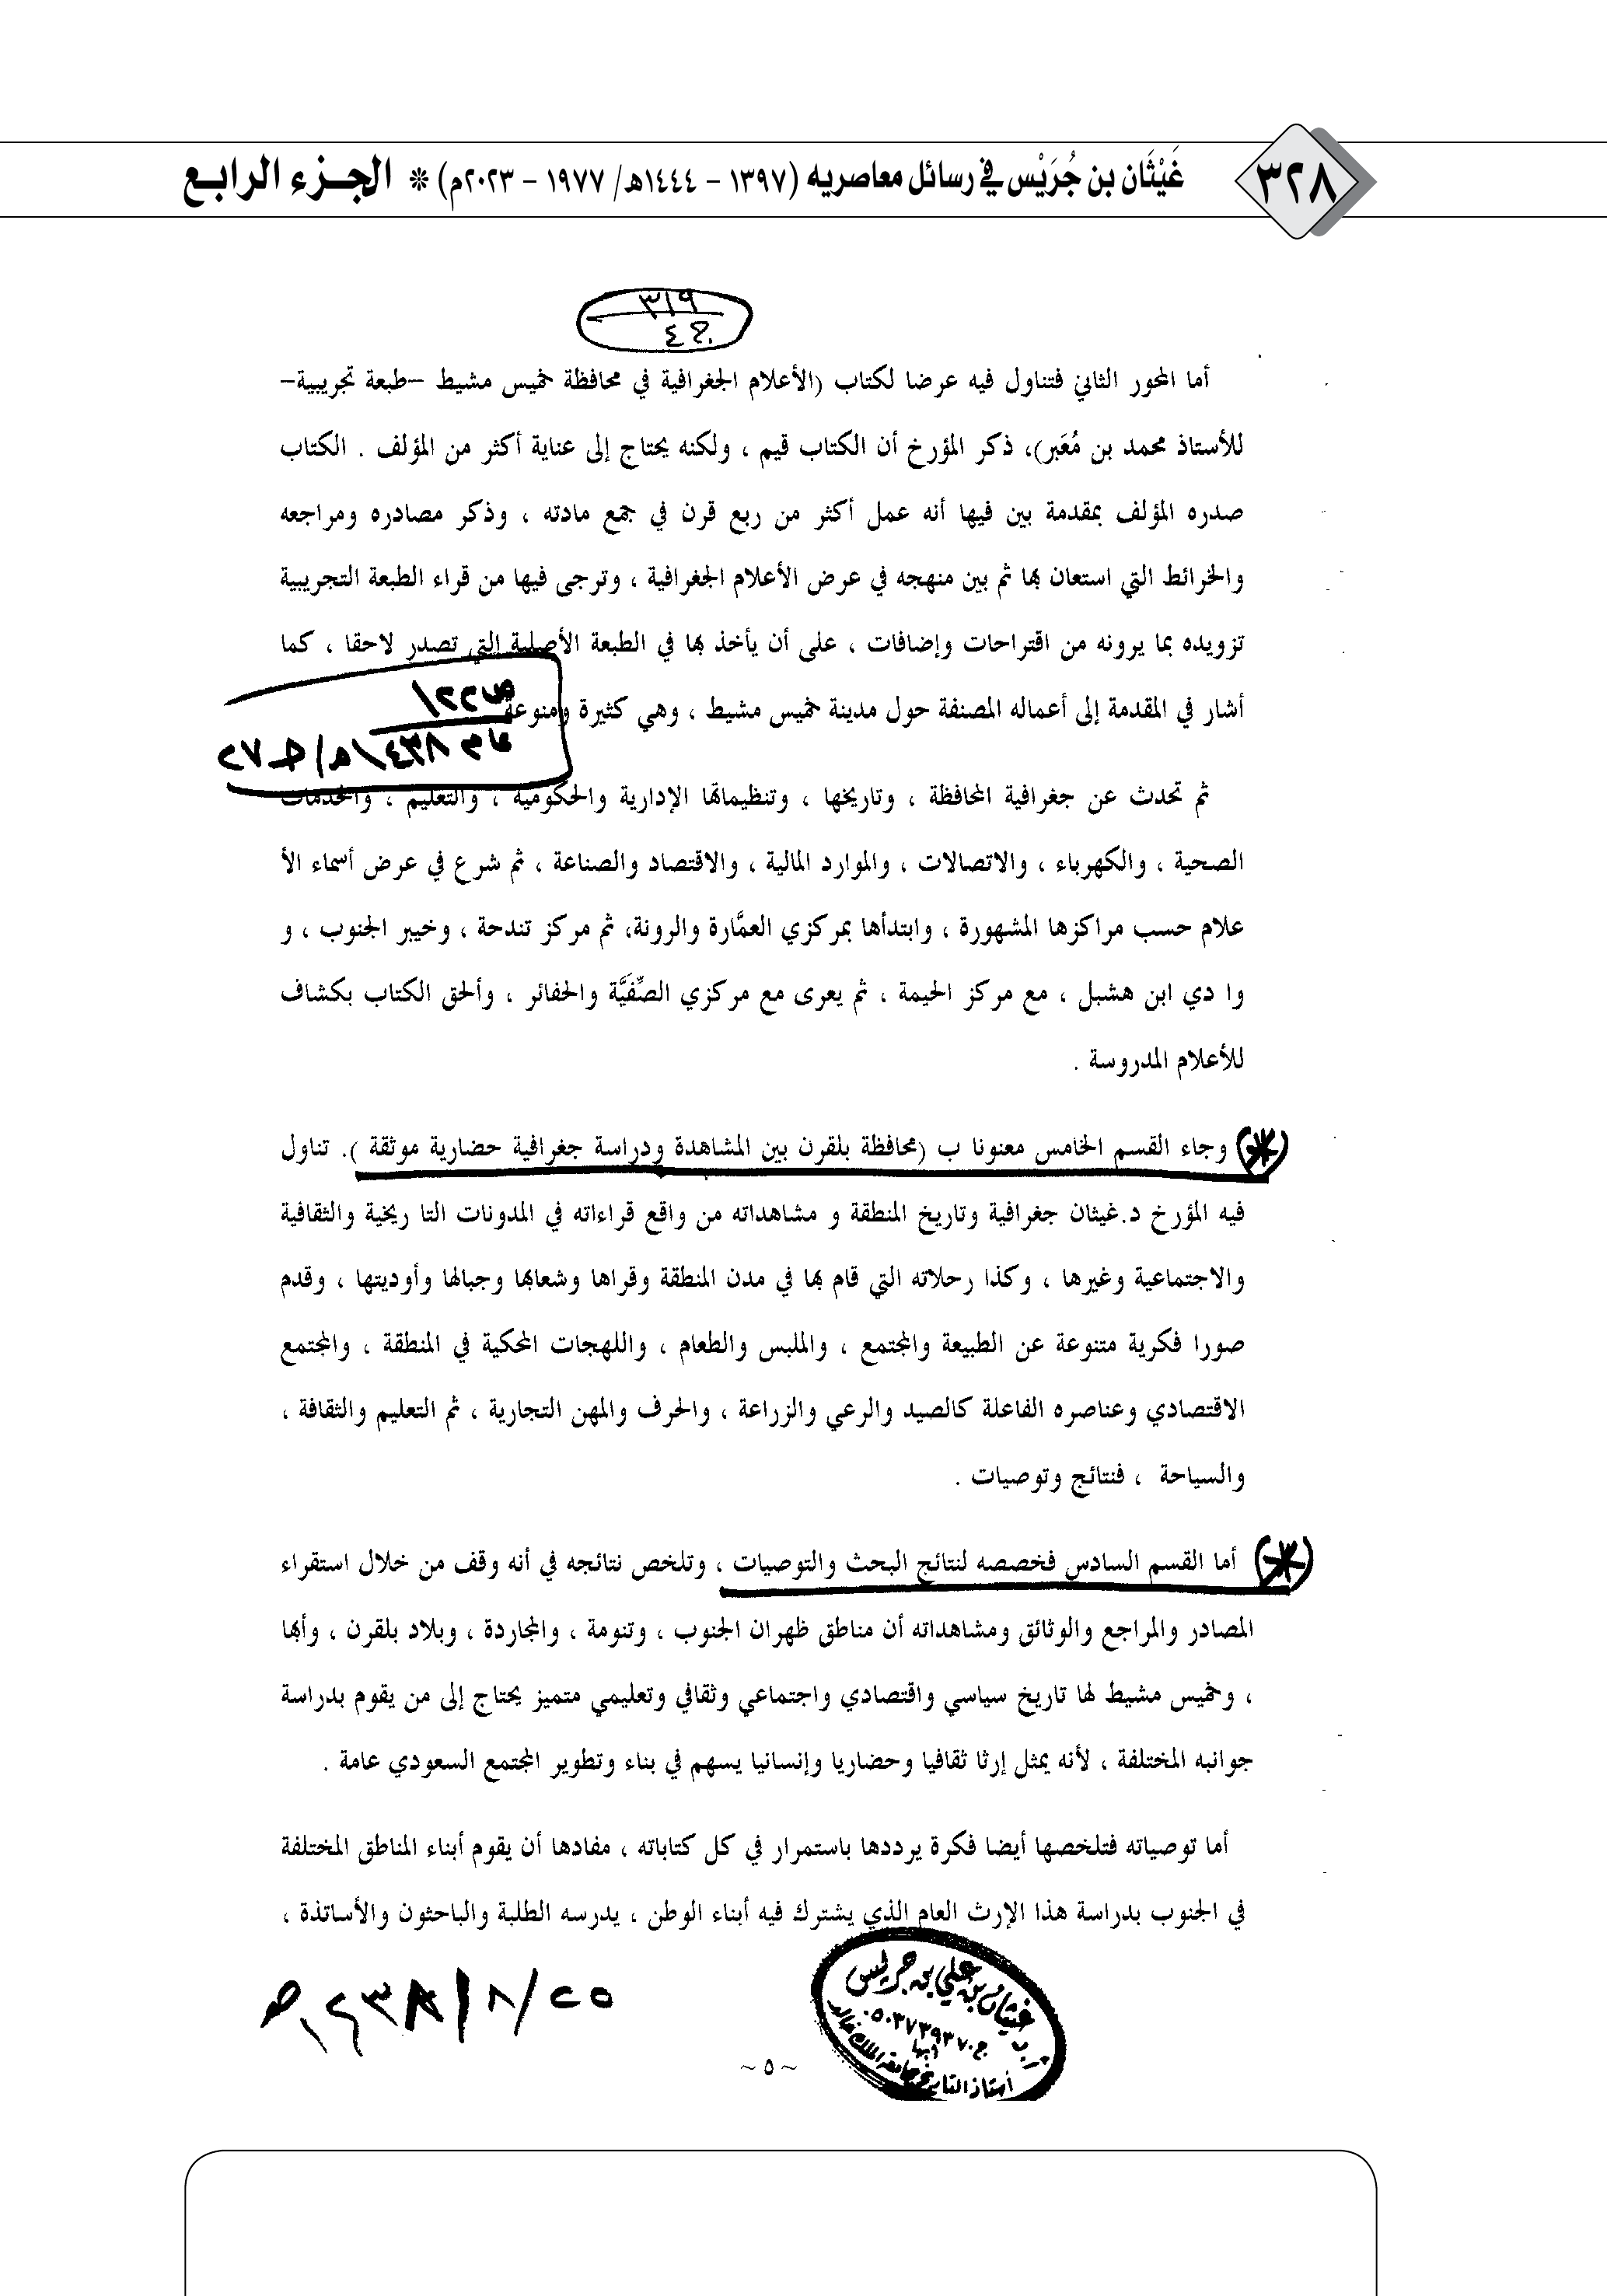 ٣٢٨
غَيْثَان بن جُرَيْس في رسائل معاصريه (١٣٩٧ - ١٤٤٤هـ/ ١٩٧٧ - ٢٠٢٣م) * الجزء الرابع
٣١٩
ج٤
أما المحور الثاني فتناول فيه عرضا لكتاب (الأعلام الجغرافية في محافظة خميس مشيط –طبعة تجريبية–
للأستاذ محمد بن مُعَبر)، ذكر المؤرخ أن الكتاب قيم ، ولكنه يحتاج إلى عناية أكثر من المؤلف . الكتاب
صدره المؤلف بمقدمة بين فيها أنه عمل أكثر من ربع قرن في جمع مادته ، وذكر مصادره ومراجعه
والخرائط التي استعان بها ثم بين منهجه في عرض الأعلام الجغرافية ، وترجى فيها من قراء الطبعة التجريبية
تزويده بما يرونه من اقتراحات وإضافات ، على أن يأخذ بها في الطبعة الأصلية التي تصدر لاحقا ، كما
أشار في المقدمة إلى أعماله المصنفة حول مدينة خميس مشيط ، وهي كثيرة ومنوعة
ص١٢٢
عام ١٤٣٨هـ/ج٢٧
ثم تحدث عن جغرافية المحافظة ، وتاريخها ، وتنظيماتها الإدارية والحكومية ، والتعليم ، والخدمات
الصحية ، والكهرباء ، والاتصالات ، والموارد المالية ، والاقتصاد والصناعة ، ثم شرع في عرض أسماء الأ
علام حسب مراكزها المشهورة ، وابتدأها بمركزي العمَّارة والرونة، ثم مركز تندحة ، وخيبر الجنوب ، و
وا دي ابن هشبل ، مع مركز الحيمة ، ثم يعرى مع مركزي الصِّفَيَّة والحفائر ، وألحق الكتاب بكشاف
للأعلام المدروسة .
(*) وجاء القسم الخامس معنونا ب (محافظة بلقرن بين المشاهدة ودراسة جغرافية حضارية موثقة ). تناول
فيه المؤرخ د.غيثان جغرافية وتاريخ المنطقة و مشاهداته من واقع قراءاته في المدونات التا ريخية والثقافية
والاجتماعية وغيرها ، وكذا رحلاته التي قام بها في مدن المنطقة وقراها وشعابها وجبالها وأوديتها ، وقدم
صورا فكرية متنوعة عن الطبيعة والمجتمع ، والملبس والطعام ، واللهجات المحكية في المنطقة ، والمجتمع
الاقتصادي وعناصره الفاعلة كالصيد والرعي والزراعة ، والحرف والمهن التجارية ، ثم التعليم والثقافة ،
والسياحة ، فنتائج وتوصيات .
(*) أما القسم السادس فخصصه لنتائج البحث والتوصيات ، وتلخص نتائجه في أنه وقف من خلال استقراء
المصادر والمراجع والوثائق ومشاهداته أن مناطق ظهران الجنوب ، وتنومة ، والمجاردة ، وبلاد بلقرن ، وأبها
، وخميس مشيط لها تاريخ سياسي واقتصادي واجتماعي وثقافي وتعليمي متميز يحتاج إلى من يقوم بدراسة
جوانبه المختلفة ، لأنه يمثل إرثا ثقافيا وحضاريا وإنسانيا يسهم في بناء وتطوير المجتمع السعودي عامة .
أما توصياته فتلخصها أيضا فكرة يرددها باستمرار في كل كتاباته ، مفادها أن يقوم أبناء المناطق المختلفة
في الجنوب بدراسة هذا الإرث العام الذي يشترك فيه أبناء الوطن ، يدرسه الطلبة والباحثون والأساتذة ،
غيثان بن علي بن جريس
ج.٠٥٠٣٧٣٩٣٧٠
أبها
أستاذ التاريخ جامعة الملك خالد
٢٥/٨/١٤٣٨هـ
~ ٥ ~